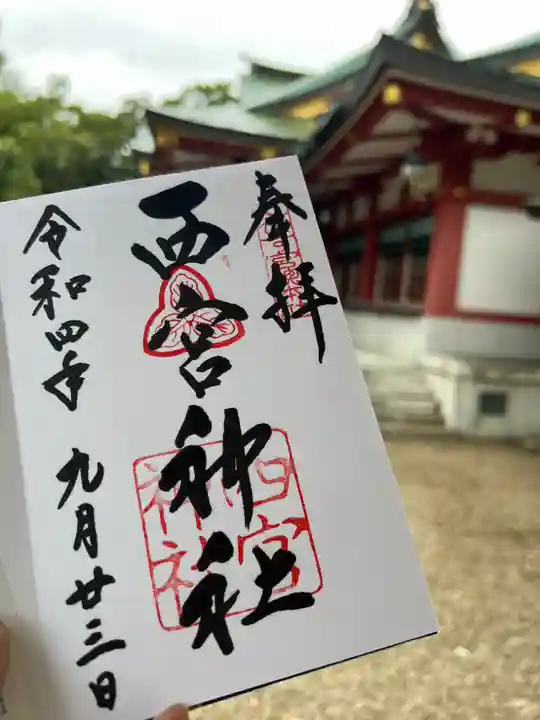 奉拝
西宮神社
西宮神社
令和四年 九月廿三日